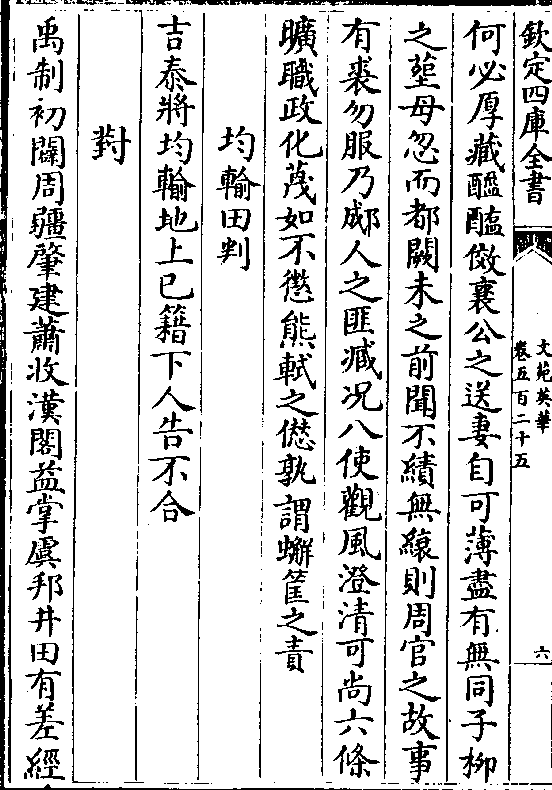 欽定四庫全書
文苑英華
卷五百二十五
六
何必厚藏醯醢傚襄公之送妻自可薄盡有無同子柳
之塟母忽而都闕未之前聞不績無纕則周官之故事
有裘勿服乃郕人之匪臧况八使觀風澄清可尚六條
曠職政化蔑如不懲熊軾之愆孰謂蠏筐之責
均輸田判
吉泰將均輸地上已籍下人告不合
對
禹制初闢周疆肇建蕭收漢閣益掌虞邦井田有差經